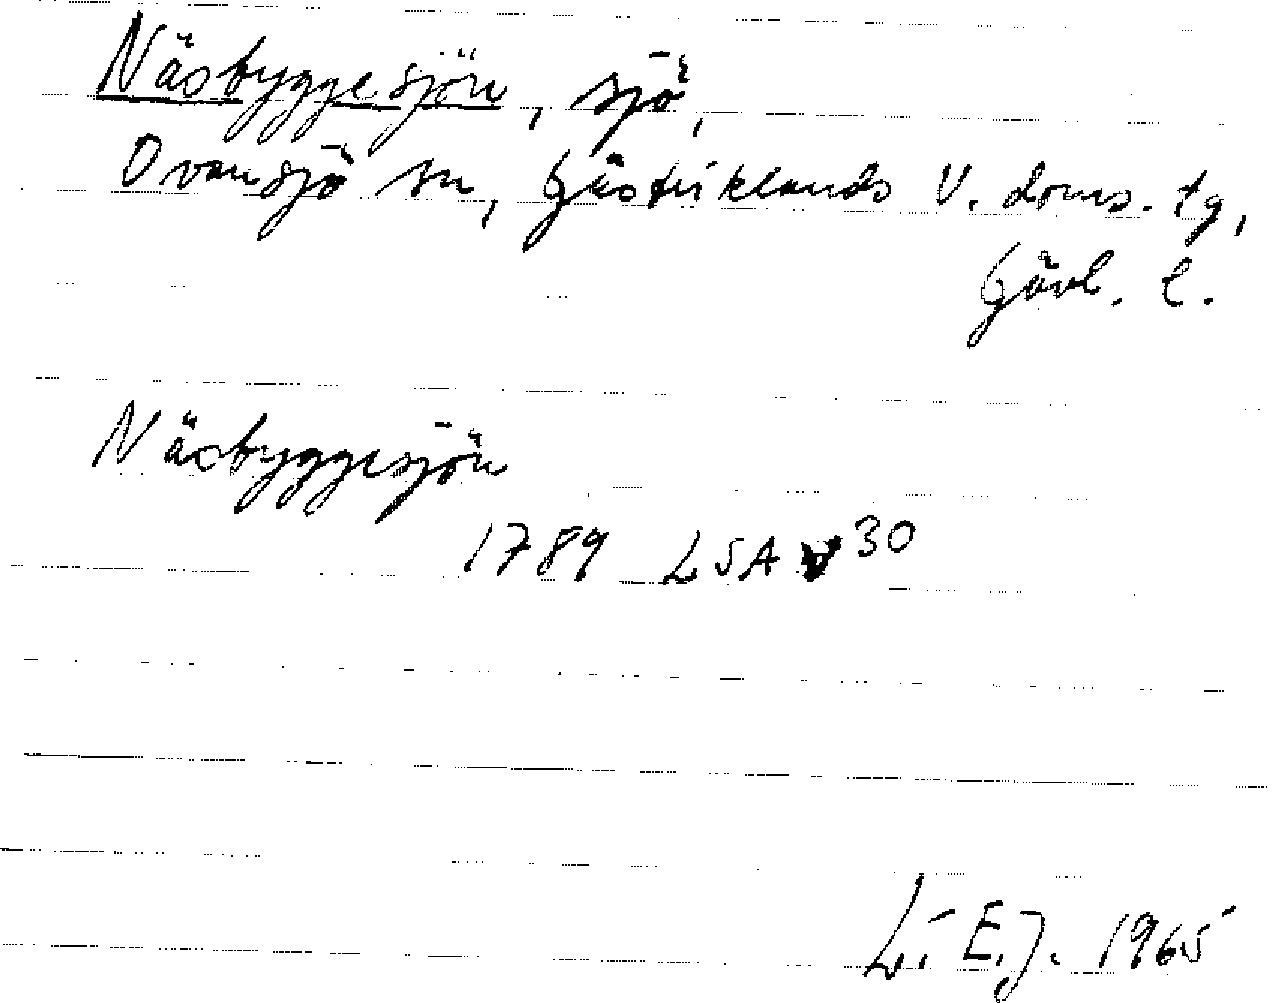 Näsbyggesjön, sjö,
Ovansjö sn, Gästriklands V. doms. tg,
Gävl. l.
Näsbyggesjön
1789 LSA V 30
L. E. J. 1965